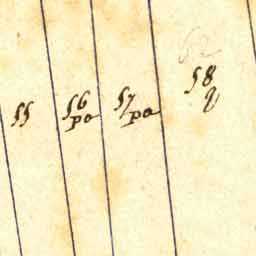 55 56 57 58
po po q